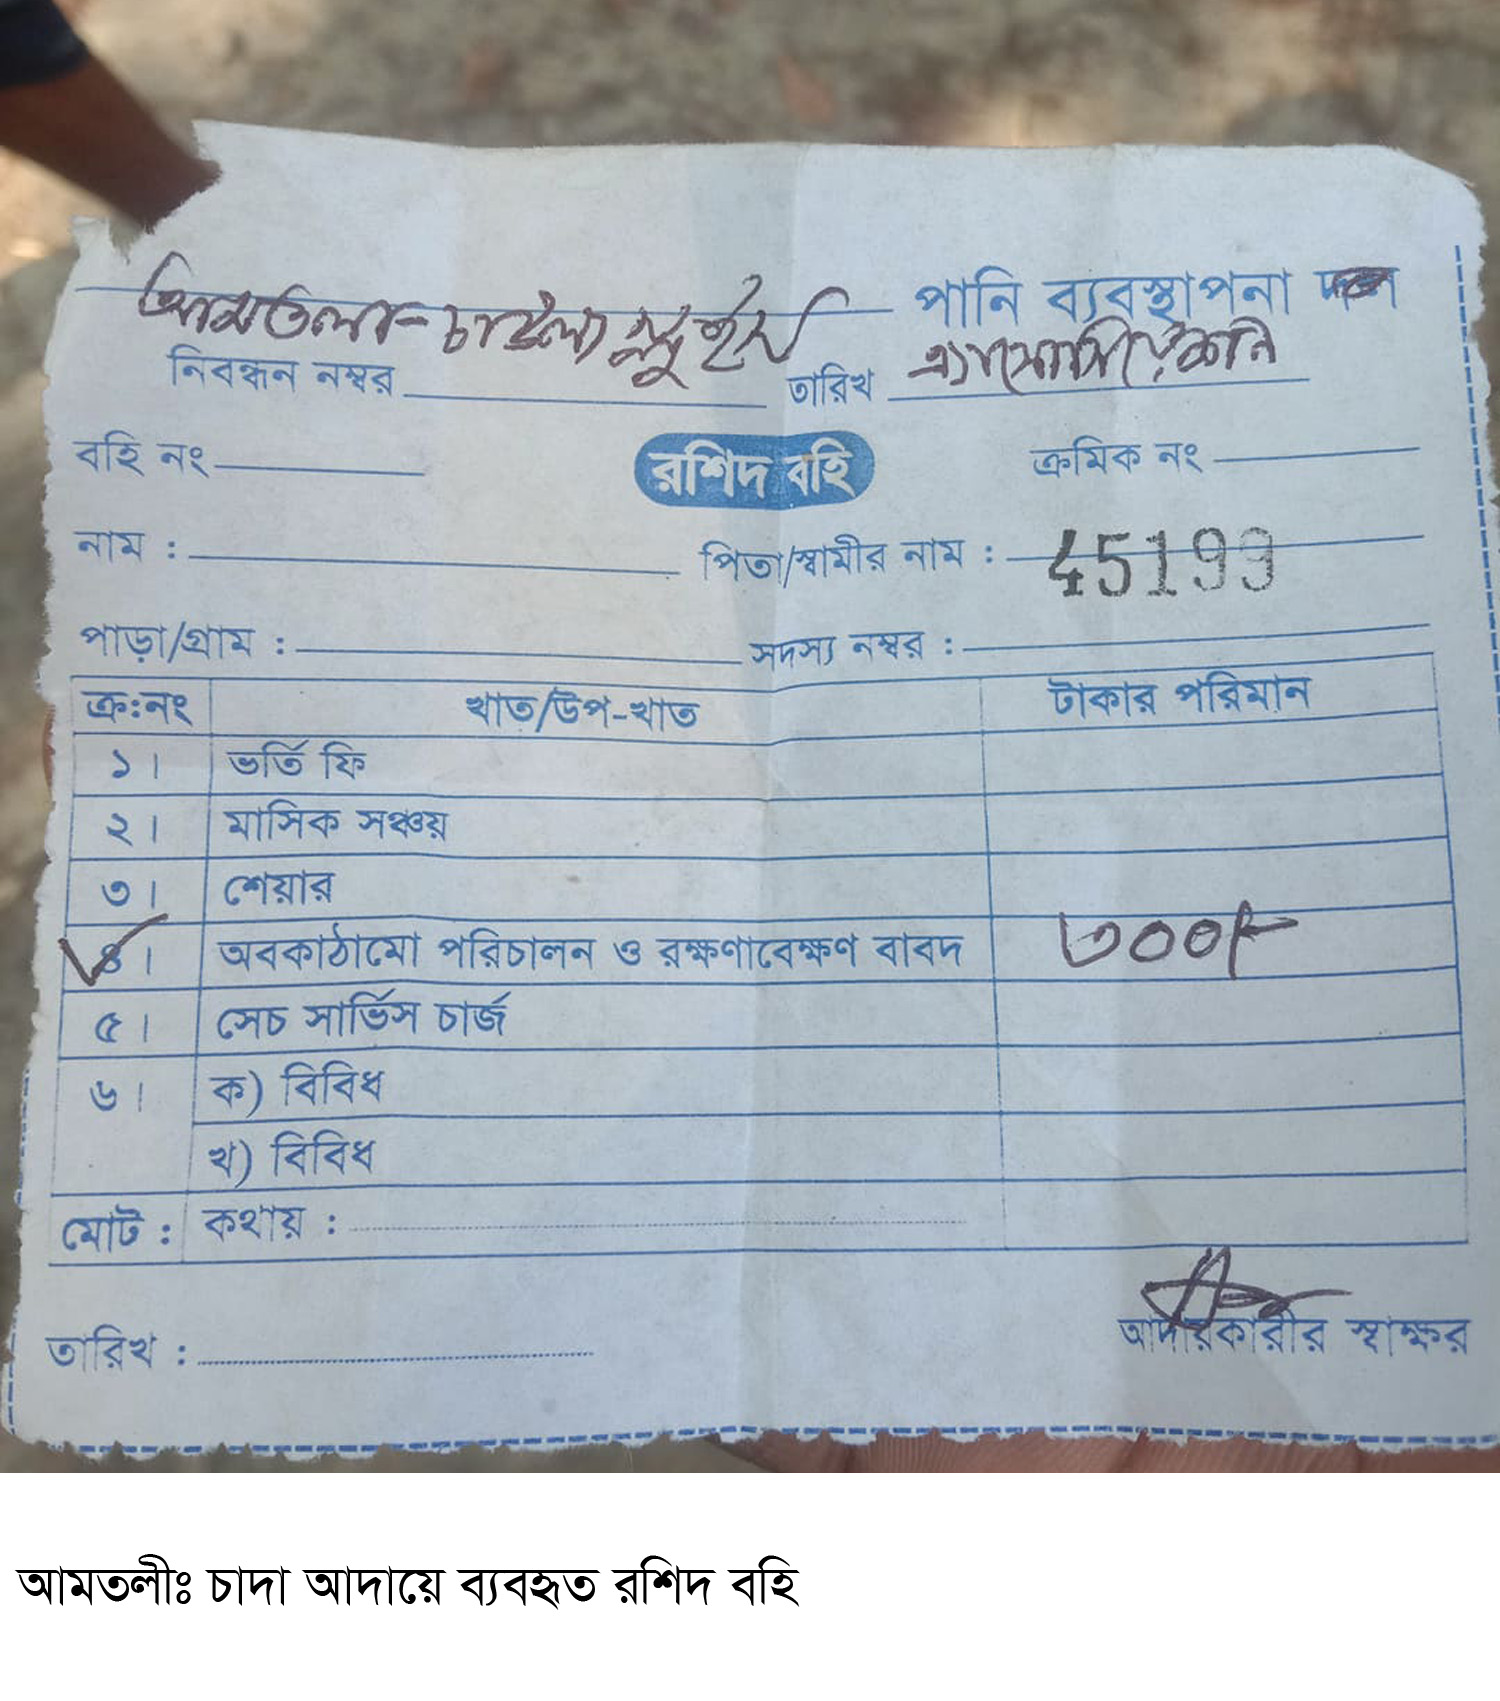 আমতলা-চাউলা স্লুইস পানি ব্যবস্থাপনা দল
নিবন্ধন নম্বর তারিখ এ্যাসোসিয়েশন
বহি নং রশিদ বহি ক্রমিক নং
নাম : পিতা/স্বামীর নাম : 45199
পাড়া/গ্রাম : সদস্য নম্বর :
ক্র:নং খাত/উপ-খাত টাকার পরিমান
১। ভর্তি ফি
২। মাসিক সঞ্চয়
৩। শেয়ার
৪। অবকাঠামো পরিচালন ও রক্ষণাবেক্ষণ বাবদ ৩০০/-
৫। সেচ সার্ভিস চার্জ
৬। ক) বিবিধ
খ) বিবিধ
মোট : কথায় :
তারিখ : আদায়কারীর স্বাক্ষর
আমতলীঃ চাদা আদায়ে ব্যবহৃত রশিদ বহি